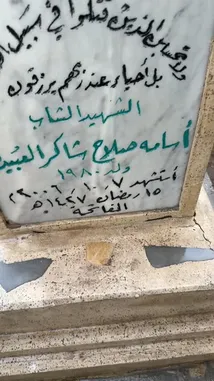 ولا تحسبن الذين قتلوا في سبيل الله
بل أحياء عند ربهم يرزقون
الشهيد الشاب
أسامه صلاح شاكر العبيد
ولد ١٩٨٠
أستشهد ٢٠٠٦/١٠/٧ م
١٥ رمضان ١٤٢٧ هـ
الفاتحة